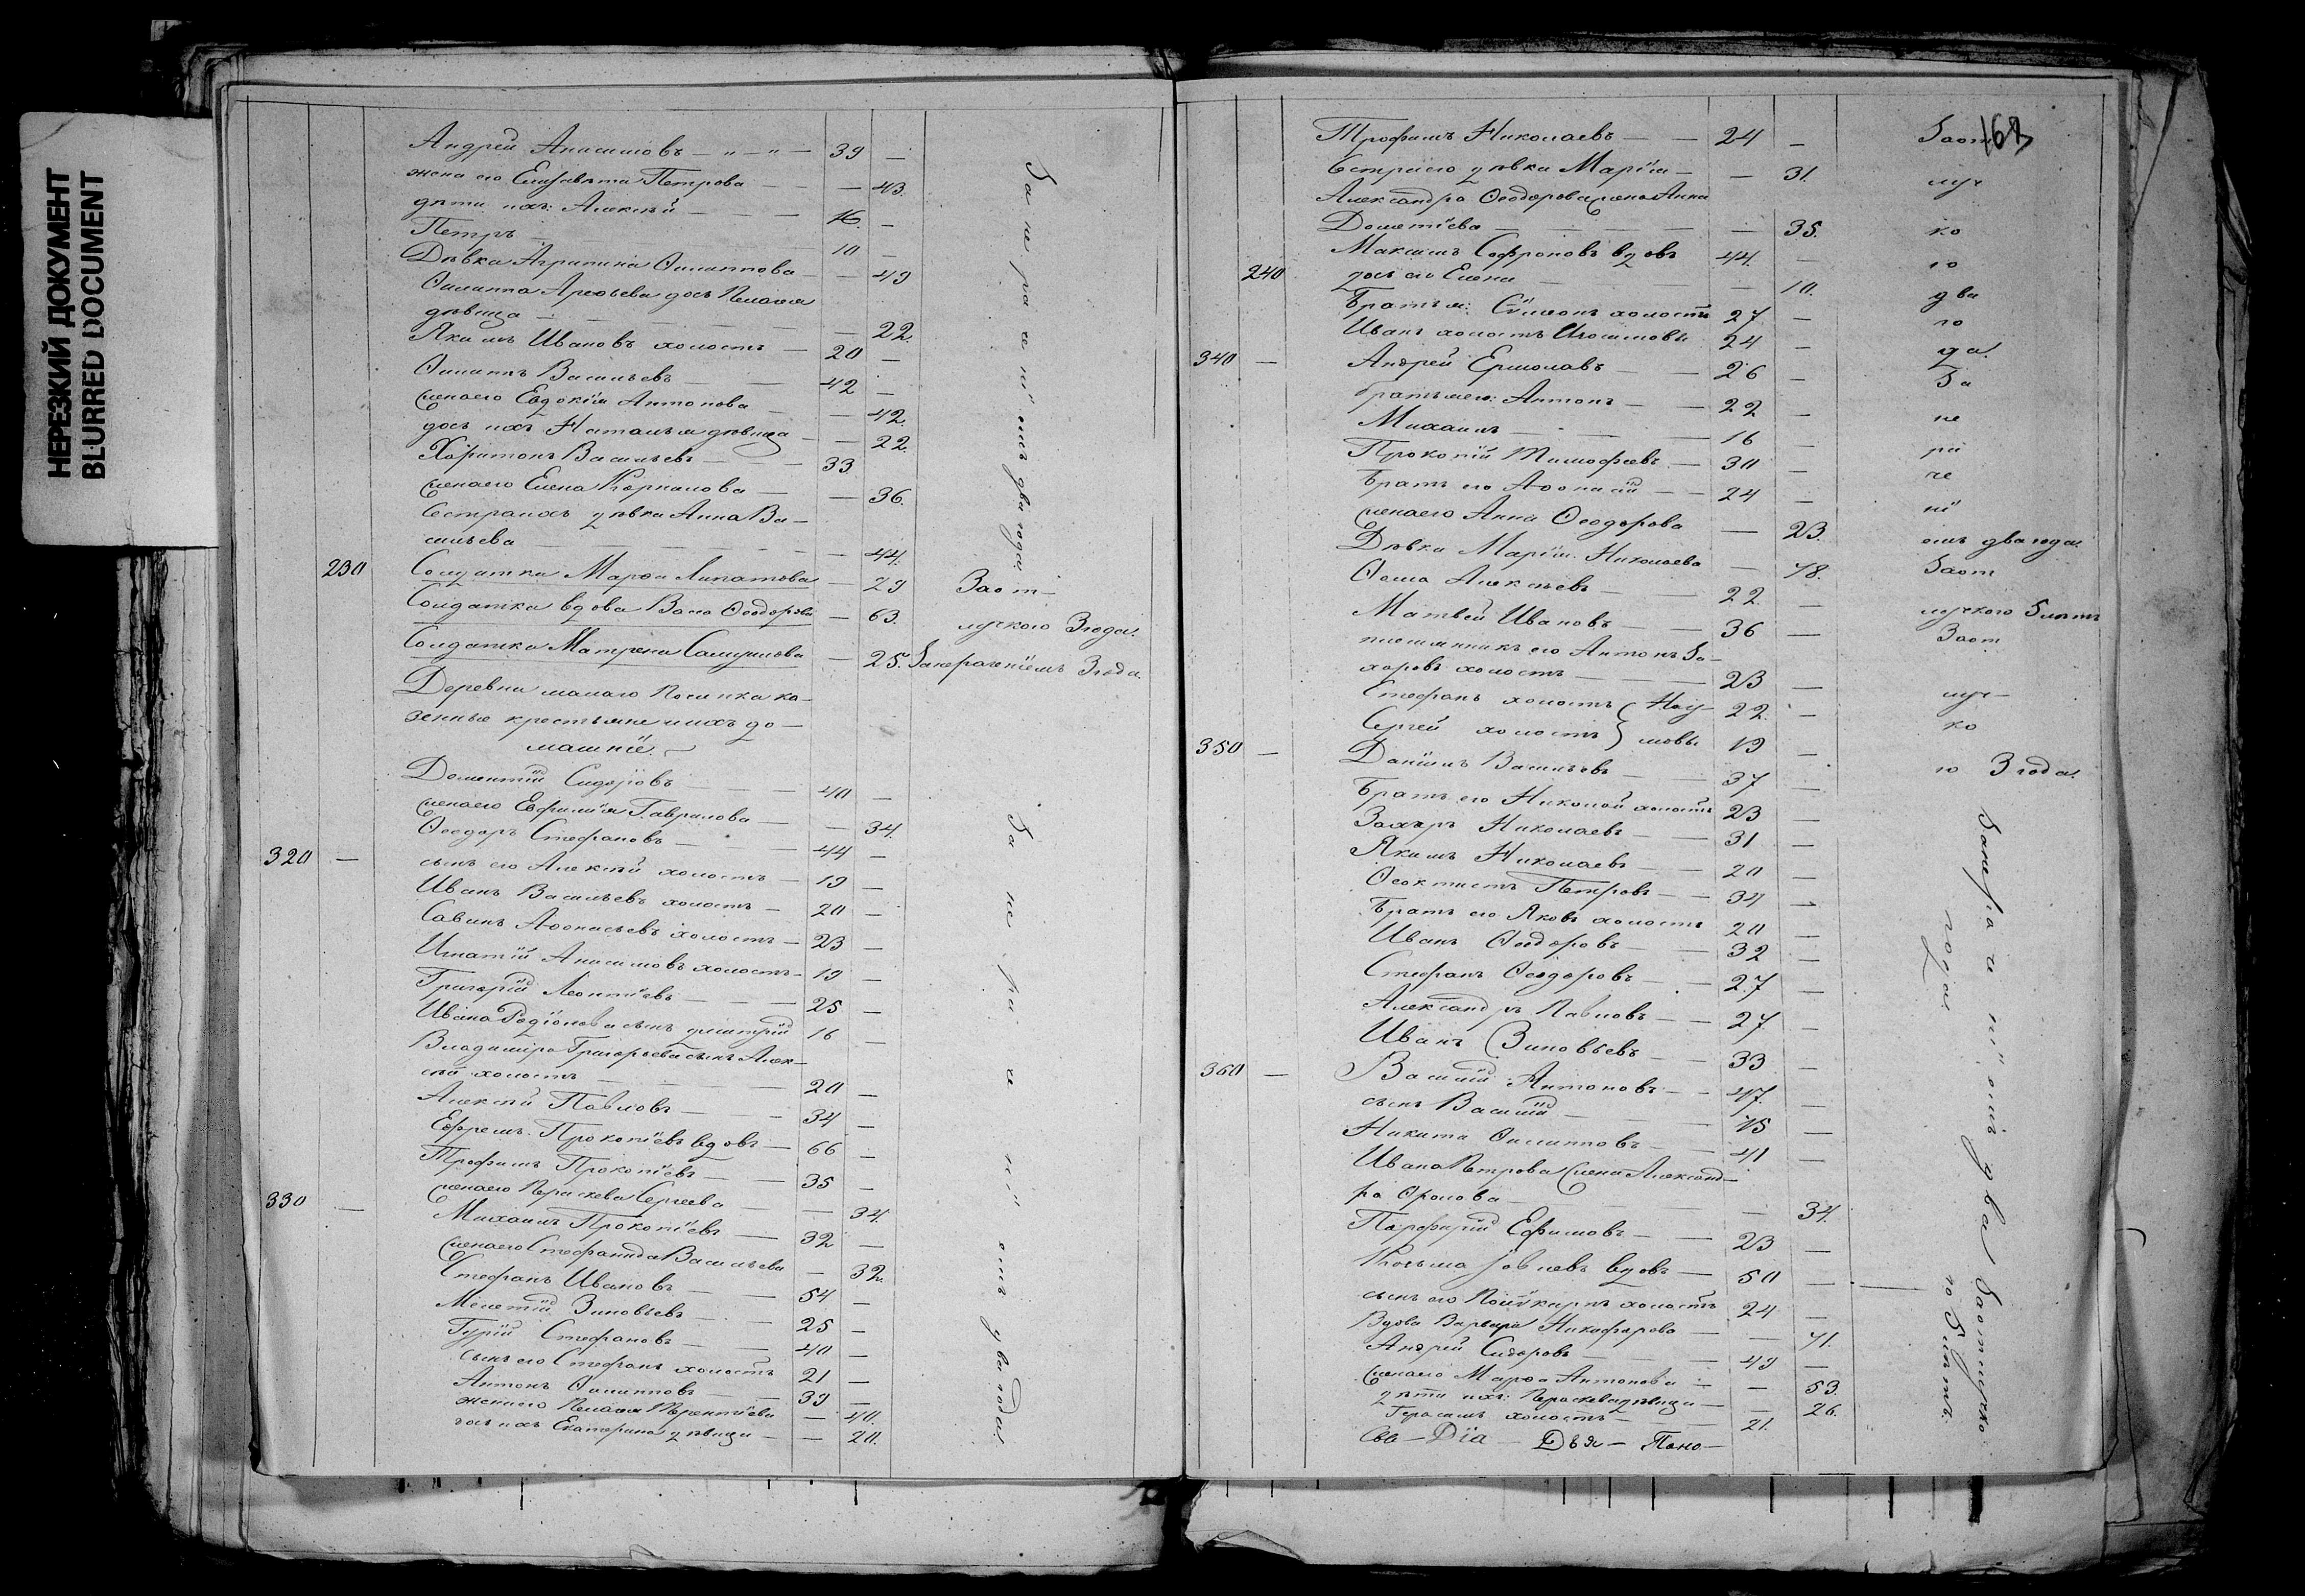 НЕРЕЗКИЙ ДОКУМЕНТ
BLURRED DOCUMENT
Андрей Анисимовъ — „ — „ — 39 —
жена его Елисавета Петрова — — 43.
дѣти ихъ: Алексѣй — 16. —
Петръ — 10 —
Дѣвка Агрипина Филиппова — — 49
Филиппа Арефьева дочь Пелагея
дѣвица — — 22.
Якимъ Ивановъ холостъ — 20 —
Филиппъ Васильевъ — 42 —
жена его Евдокія Антонова — — 42.
дочь ихъ Наталья дѣвица — — 22.
Харитонъ Васильевъ — 33
жена его Елена Корнилова — — 36.
Сестра ихъ дѣвка Анна Ва-
сильева — — 44.
230 Солдатка Марфа Липатова — 29 Заот-
Солдатка вдова Васса Ѳеодорова — 63. лучкою 3 года.
Солдатка Матрена Самуилова — 25. Занераченіемъ 3 года.
За нераченіемъ два года
Деревни малаго Починка ка-
зенные крестьяне и ихъ до-
машніе.
Дометій Сидоровъ — 40 —
жена его Евфимія Гаврилова — — 34.
Ѳеодоръ Стефановъ — 44 —
320 — сынъ его Алексѣй холостъ — 19 —
Иванъ Васильевъ холостъ — 20 —
Савинъ Аѳонасьевъ холостъ — 23 —
Игнатій Анисимовъ холостъ — 19 —
Григорій Леонтіевъ — 25 —
Ивана Родіонова сынъ Дмитрій 16 —
Владиміра Григорьева сынъ Алек-
сѣй холостъ — 20 —
Алексѣй Павловъ — 34 —
Ефремъ Прокопіевъ вдовъ — 66 —
Трофимъ Прокопіевъ — 35 —
330 — жена его Параскева Сергеева — — 34.
Михаилъ Прокопіевъ — 32 —
жена его Стефанида Васильева — 32.
Стефанъ Ивановъ — 54 —
Мелетій Зиновьевъ — 25 —
Гурій Стефановъ — 40 —
сынъ его Стефанъ холостъ 21 —
Антонъ Филипповъ — 39 —
жена его Пелагея Терентіева — 40.
дочь ихъ Екатерина дѣвица — — 20.
За нераченіемъ два года.
Трофимъ Николаевъ — — 24 — Заот
Сестра его дѣвка Марія — — 31. луч
Александра Ѳеодорова жена Анна
Дометіева — — 35. ко
Максимъ Софроновъ вдовъ 44. — ю
240 дочь его Елена — — 10. два
Братья: Сѵмеонъ холостъ 27 — го
Иванъ холостъ Изосимовы 24 — да.
340 — Андрей Ермолаевъ — 26 — За
братья его: Антонъ — 22 — не
Михаилъ — 16 — ра
Прокопій Тимофеевъ — 30 — че
Братъ его Аѳонасій — 24 — ні
жена его Анна Ѳеодорова — 23. емъ два года.
Дѣвка Марія Николаева — 48. Заот
Ѳома Алексѣевъ — 22 — лучкою 5 лѣтъ
Матвей Ивановъ — 36 — Заот
племянникъ его Антонъ За-
харовъ холостъ — 23 — луч-
Стефанъ холостъ } Нау- 22. — ко
Сергей холостъ } мовы 19 —
350 — Даніилъ Васильевъ — 37 — ю 3 года.
Братъ его Николай холостъ 23 —
Захаръ Николаевъ — 31 —
Якимъ Николаевъ — 20 —
Ѳеоктистъ Петровъ — 34 —
Братъ его Яковъ холостъ 20 —
Иванъ Ѳеодоровъ — 32 —
Стефанъ Ѳеодоровъ — 27 —
Александръ Павловъ — 27 —
Иванъ Зиновьевъ — 33 —
360 — Василій Антоновъ — 47. —
сынъ Василій — 15 —
Никита Филипповъ — 41 —
Ивана Петрова жена Александ-
ра Фролова — — 34.
Парфирій Ефимовъ — 23 —
Козьма Іовлевъ вдовъ — 50 —
сынъ его Поликарпъ холостъ 24 —
Вдова Варвара Никифорова — — 71.
Андрей Сидоровъ — 49 —
жена его Марфа Антонова — — 53.
дѣти ихъ: Параскева дѣвица — — 26.
Герасимъ холостъ — 21.
Занераченіемъ два
года
Заотлучко
ю 5 лѣтъ.
Сва — Діа — Дья — Поно —